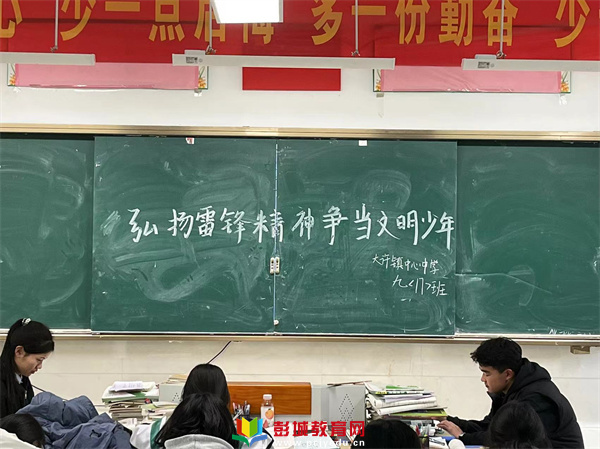 心 少一点后悔 多一份勤奋 少
弘扬雷锋精神争当文明少年
大许镇中心中学
九<1>班
彭城教育网